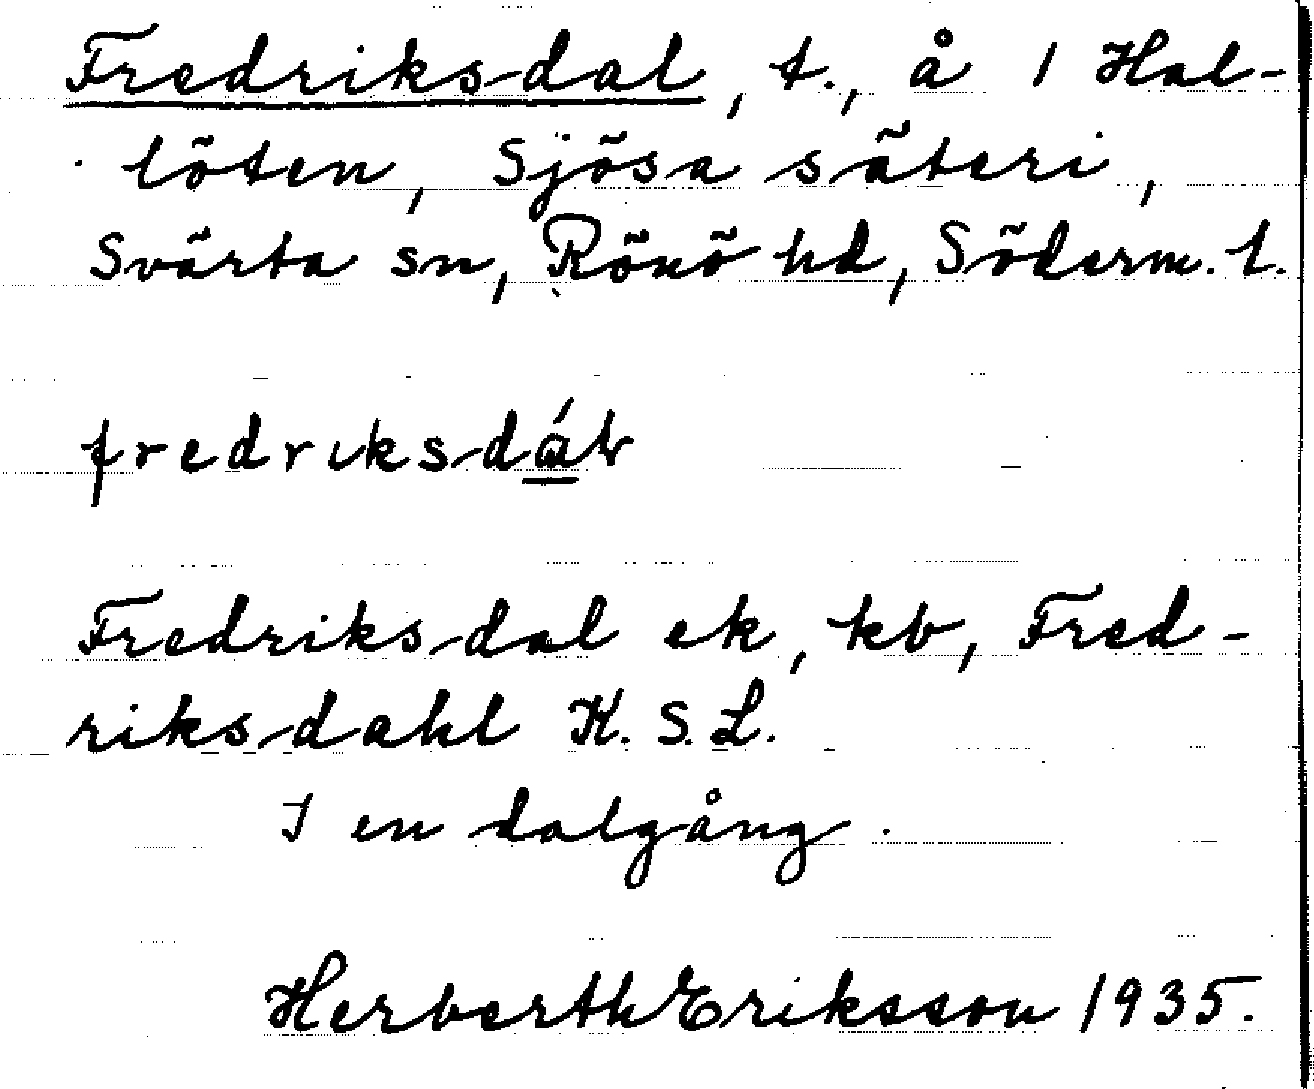 Fredriksdal, t., å 1 Hal-
löten, Sjösa säteri,
Svärta sn, Rönö hd, Söderm. l.
fredriksdál
Fredriksdal ek, kb, Fred-
riksdahl K. S. L.
I en dalgång.
Herberth Eriksson 1935.